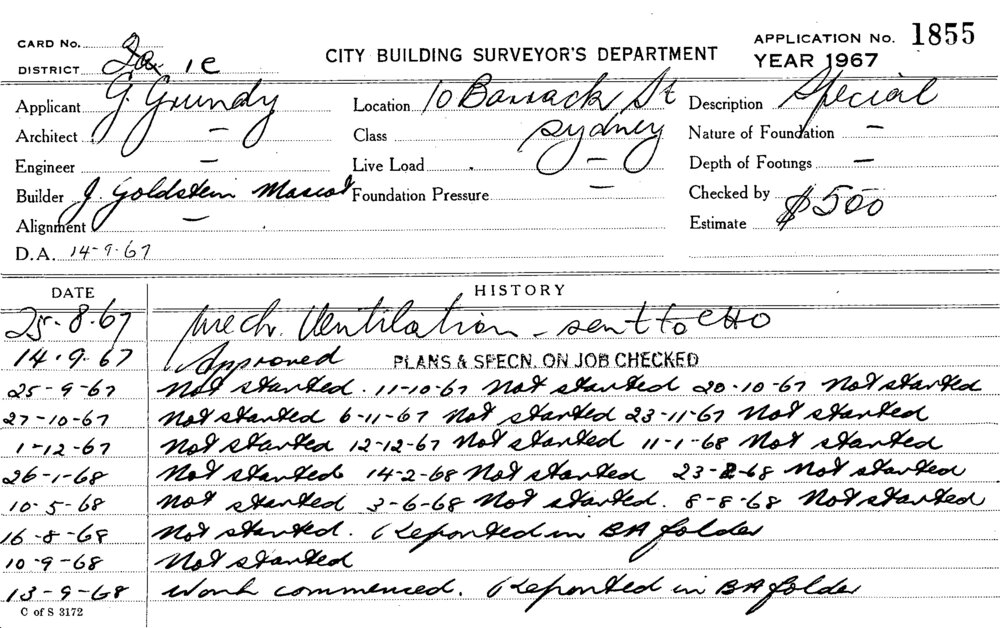 CARD No. 2a
CITY BUILDING SURVEYOR'S DEPARTMENT
APPLICATION No. 1855
DISTRICT 1C
YEAR 1967
Applicant G. Grundy Location 10 Barrack St Description Special
Architect — Class Sydney Nature of Foundation —
Engineer — Live Load — Depth of Footings —
Builder J Goldstein Mascot Foundation Pressure — Checked by
Alignment — Estimate $500
D.A. 14-9-67
DATE HISTORY
25.8.67 Mech. Ventilation - sent to CHO
14.9.67 Approved PLANS & SPECN. ON JOB CHECKED
25-9-67 Not started. 11-10-67 Not started 20-10-67 Not started
27-10-67 Not started 6-11-67 Not started 23-11-67 Not started
1-12-67 Not started 12-12-67 Not started 11-1-68 Not started
26-1-68 Not started 14-2-68 Not started 23-2-68 Not started
10-5-68 Not started 3-6-68 Not started. 8-8-68 Not started
16-8-68 Not started. Reported in BA folder
10-9-68 Not started
13-9-68 Work commenced. Reported in BA folder
C of S 3172